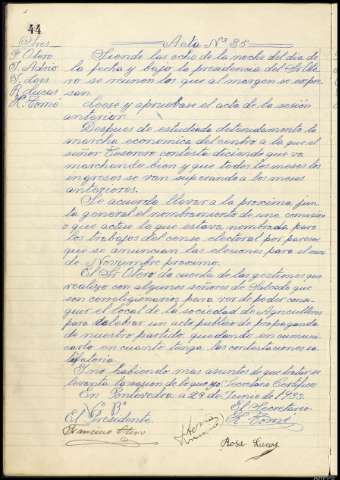 44
Sres
F. Otero
Acta Nº 85
Siendo las ocho de la noche del dia de
la fecha y bajo la presidencia del Sr. Ote
S. Lois
ro se reunen los que al margen se expre
R. Lucas
san.
H. Tomé
Leese y apruebase el acta de la sesión
anterior.
Despues de estudiada detenidamente la
marcha economica del centro a la que el
señor Tesorero contesta diciendo que va
marchando bien y que todos los meses los
ingresos se van superando a los meses
anteriores.
Se acuerda llevar a la procima jun
ta general el nombramiento de una comisión
o que actue la que estava nombrada para
los trabajos del censo electoral por parecer
que se anuncian las elecciones para el mes
de Noviembre procimo.
El Sr Otero da cuenta de las gestiones que
realizo con algunos señores de Salcedo que
son compligionarios para ver de poder conse
guir el local de la sociedad de Agricultores
para celebar un acto publico de propaganda
de nuestro partido, quedando en comuni
carlo en cuanto tenga las contestaciones sa
tisfatoria
Y no habiendo mas asuntos de que tratar se
levanta la sesion de lo que yo, Secretario Certifico
En Pontevedra a 29 de Junio de 1933.
Vº Bº
El Presidente
El Secretario
Francisco Otero
H. Tomé
Rosa Lucas